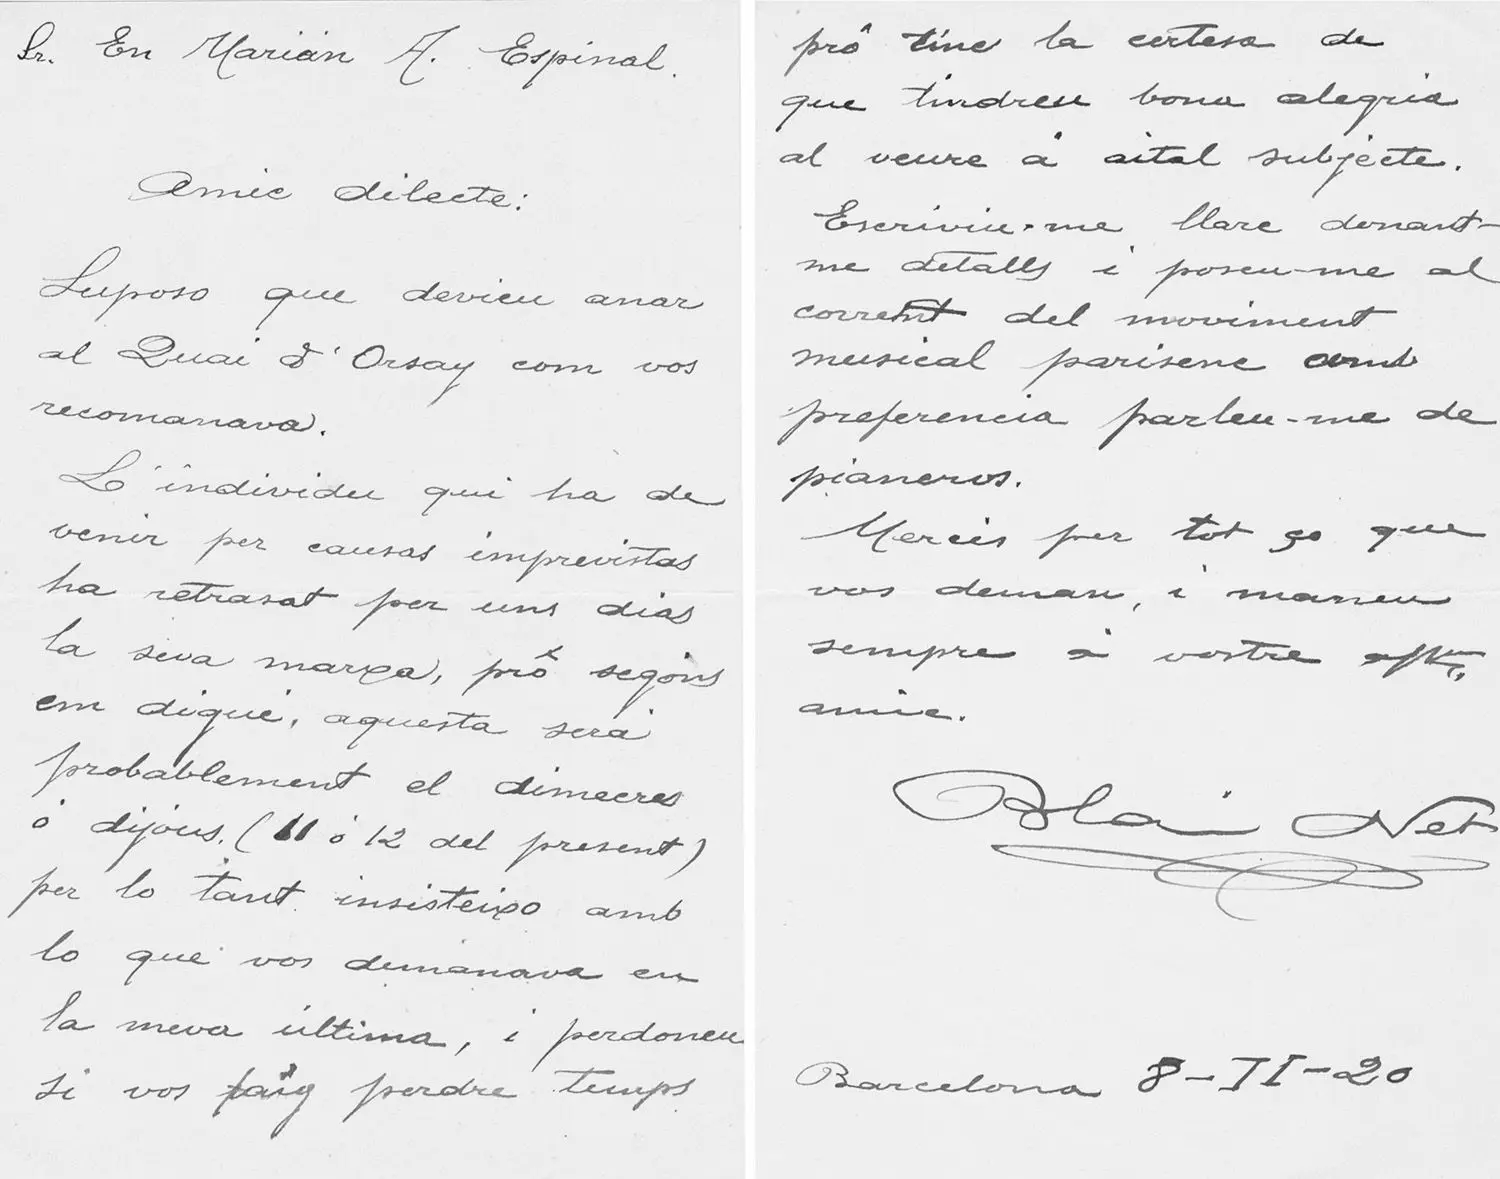 Sr. En Marián A. Espinal.
Amic dilecte:
Suposo que devieu anar
al Quai d'Orsay com vos
recomanava.
L'individu qui ha de
venir per causas imprevistas
ha retrasat per uns dias
la seva marxa, prô segóns
em digué, aquesta será
probablement el dimecres
ó dijóus. (11 ó 12 del present)
per lo tant insisteixo amb
lo que vos demanava en
la meva última, i perdoneu
si vos faig perdre temps
prô tinc la certesa de
que tindreu bona alegria
al veure á aital subjecte.
Escriviu-me llarc donant-
me detalls i poseu-me al
corrent del moviment
musical parisenc amb
preferencia parleu-me de
pianeros.
Mercés per tot ço que
vos deman, i maneu
sempre á vostre
amic.
Blai Net
Barcelona 8-II-20